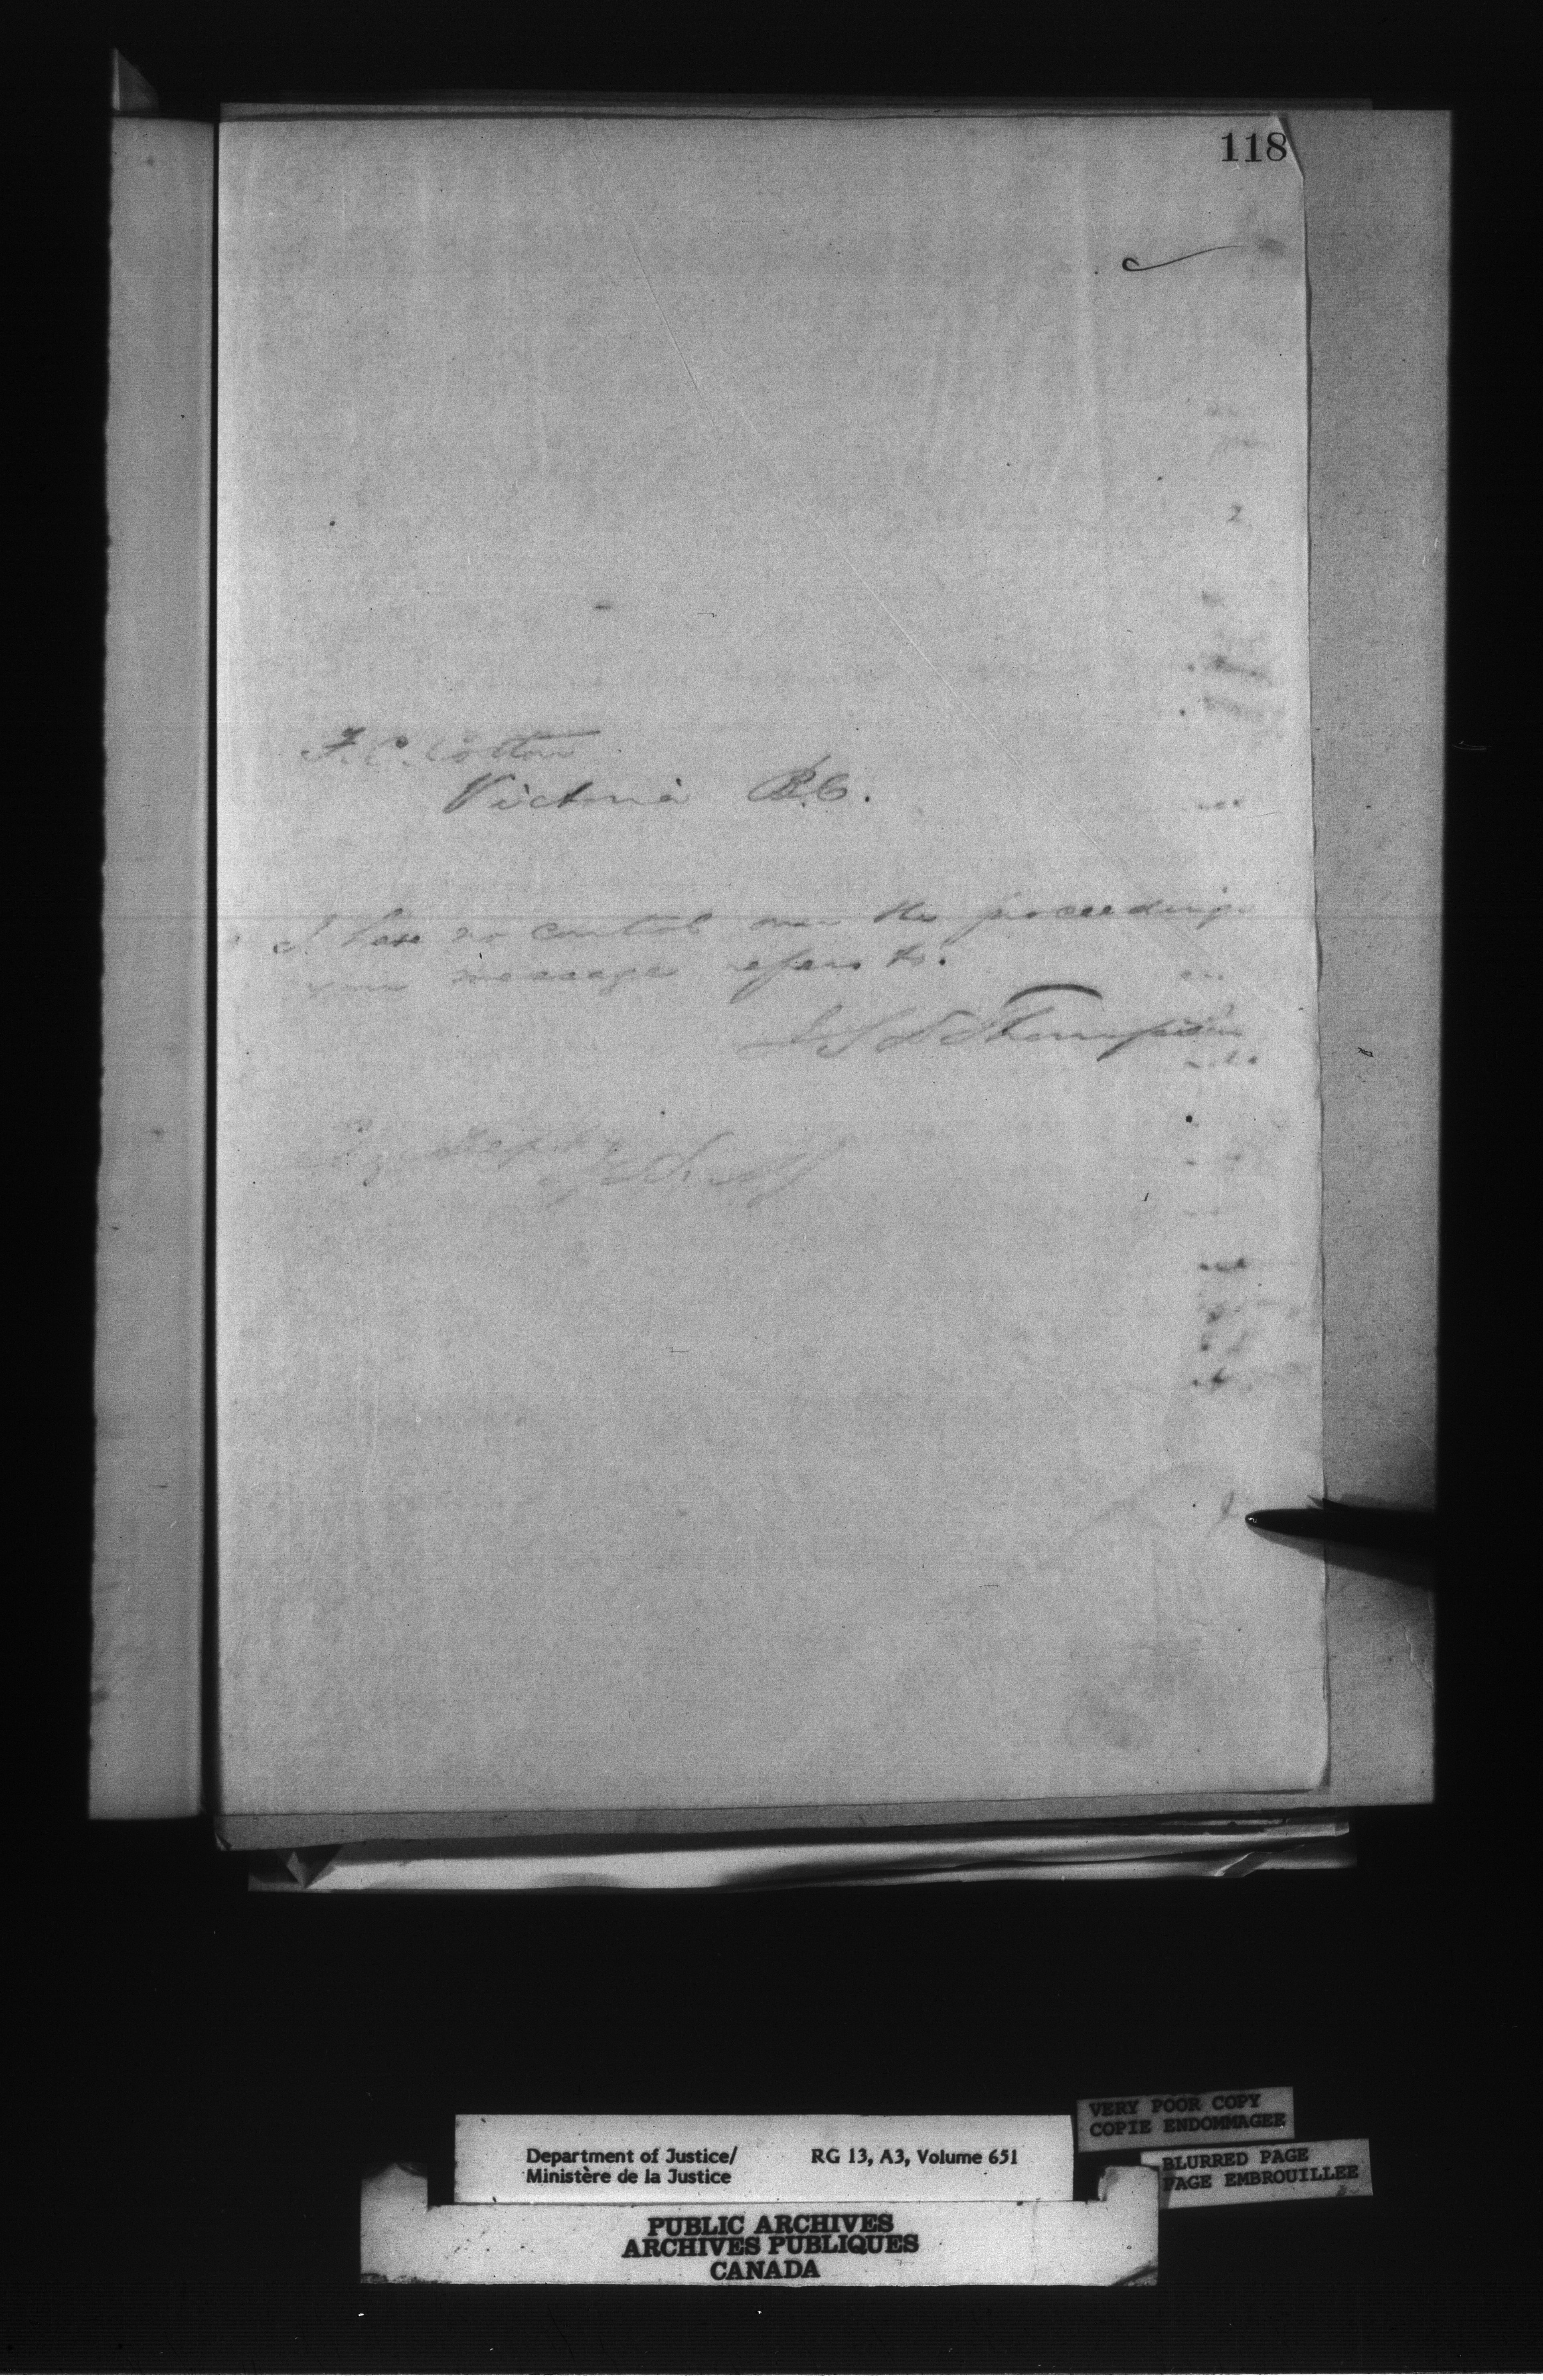 118
F. C. Cotton
Victoria B.C.
I have no control over the proceedings
your message refers to.
J S D Thompson
Department of Justice/
Ministère de la Justice
RG 13, A3, Volume 651
VERY POOR COPY
COPIE ENDOMMAGEE
BLURRED PAGE
PAGE EMBROUILLEE
PUBLIC ARCHIVES
ARCHIVES PUBLIQUES
CANADA